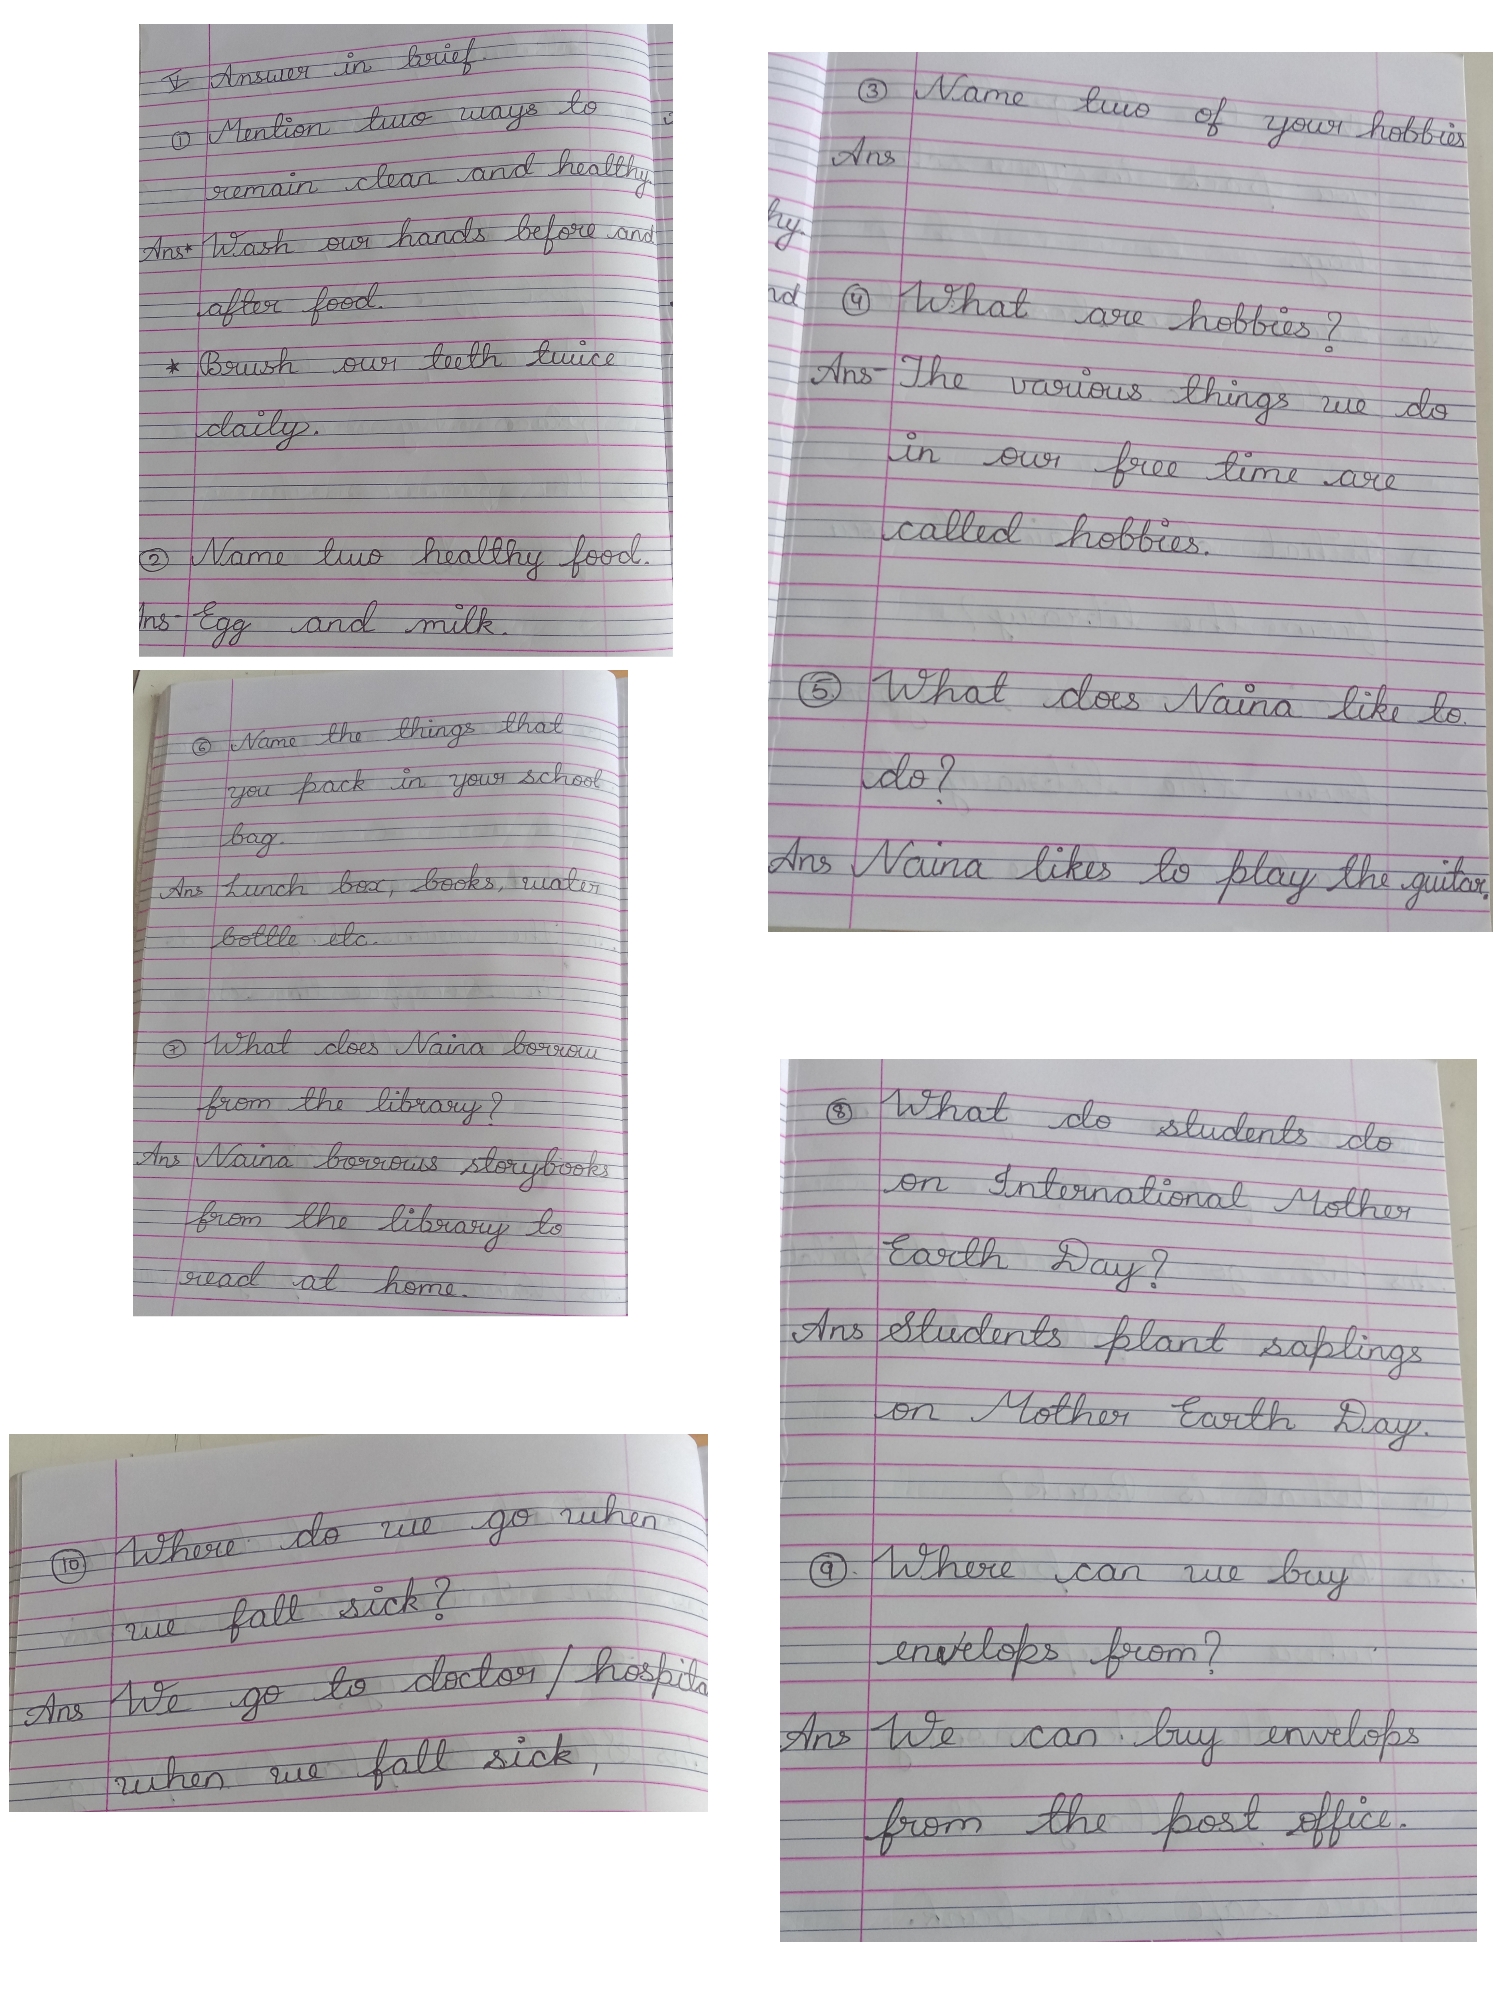 I Answer in brief.
① Mention two ways to
remain clean and healthy.
Ans* Wash our hands before and
after food.
* Brush our teeth twice
daily.
② Name two healthy food.
Ans- Egg and milk.
③ Name two of your hobbies
Ans
hy.
nd
④ What are hobbies?
Ans- The various things we do
in our free time are
called hobbies.
⑤ What does Naina like to
do?
Ans Naina likes to play the guitar.
⑥ Name the things that
you pack in your school
bag.
Ans Lunch box, books, water
bottle etc.
⑦ What does Naina borrow
from the library?
Ans Naina borrows storybooks
from the library to
read at home.
⑧ What do students do
on International Mother
Earth Day?
Ans Students plant saplings
on Mother Earth Day.
⑨ Where can we buy
envelops from?
Ans We can buy envelops
from the post office.
⑩ Where do we go when
we fall sick?
Ans We go to doctor/hospita
when we fall sick,